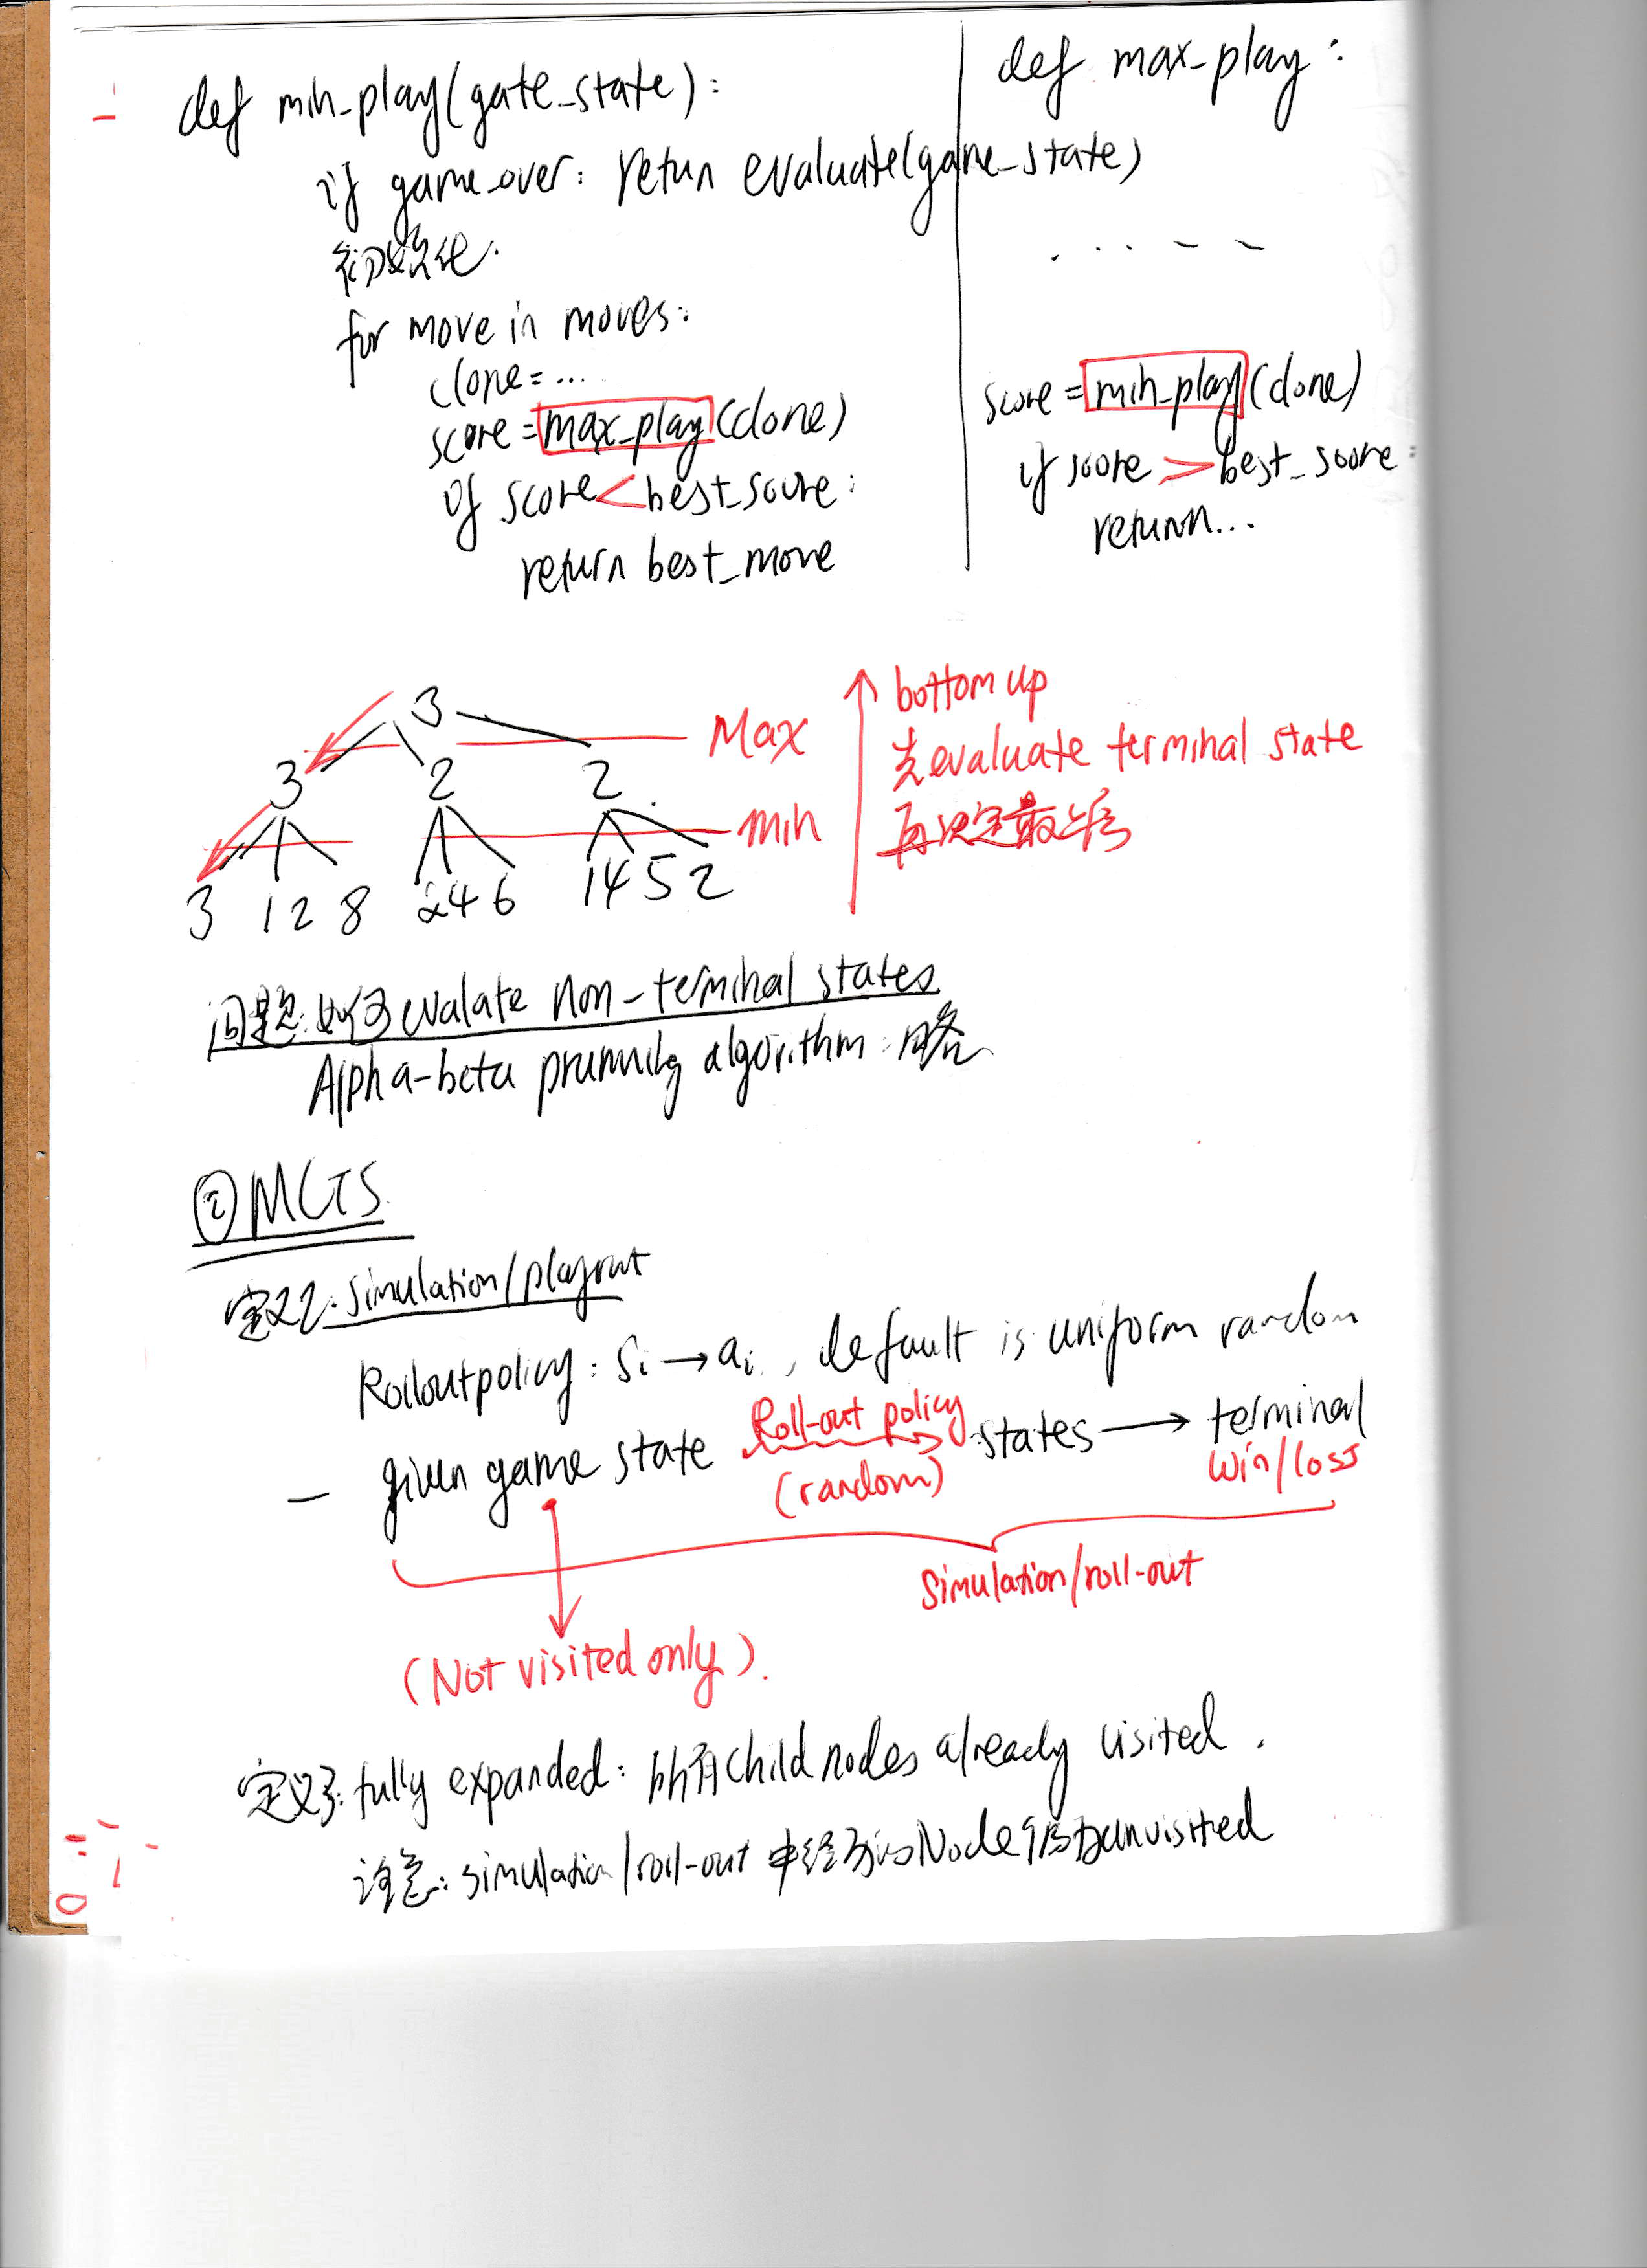 def min_play(gate_state):
if game_over: retun evaluate(game_state)
初始化.
for move in moves:
clone=...
score=max_play(clone)
if score<best_score:
return best_move
def max_play:
.....
score=min_play(clone)
if score>best_score:
return...
3
3 2 2
3 12 8 2 4 6 14 5 2
Max
min
bottom up
先evaluate terminal state
再决定最上层
问题:如何evalate non-terminal states
Alpha-beta prunning algorithm:略
②MCTS.
定义2.simulation/playout
Rolloutpolicy: Si→ai, default is uniform random
— given game state Roll-out policy (random) states → terminal
win/loss
simulation/roll-out
(Not visited only).
定义3:fully expanded:所有child nodes already visited.
注意:simulation/roll-out 中经历的Node仍为unvisited